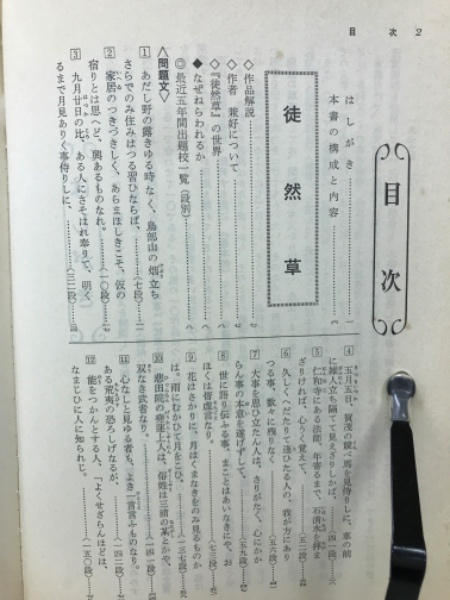 目次 2
目次
はしがき……一
本書の構成と内容……四
徒然草
◇作品解説……七
◇作者 兼好について……七
◇『徒然草』の世界……八
◆なぜねらわれるか……八
◎最近五年間出題校一覧(段別)
〈問題文〉
1 あだし野の露きゆる時なく、鳥部山の烟立ち
さらでのみ住みはつる習ひならば、……(七段)
2 家居のつきづきしく、あらまほしきこそ、仮の
宿りとは思へど、興あるものなれ。……(一〇段)
3 九月廿日の比、ある人にさそはれ奉りて、明く
るまで月見ありく事侍りしに、……(三二段)
4 五月五日、賀茂の競べ馬を見侍りしに、車の前
に雑人立ち隔てて見えざりしかば、……(四一段)
5 仁和寺にある法師、年寄るまで、石清水を拝ま
ざりければ、心うく覚えて、……(五二段)
6 久しくへだたりて逢ひたる人の、我が方にあり
つる事、数々に残りなく……(五六段)
7 大事を思ひ立たん人は、さりがたく、心にかか
らん事の本意を遂げずして、……(五九段)
8 世に語り伝ふる事、まことはあいなきにや、お
ほくは皆虚言なり。……(七三段)
9 花はさかりに、月はくまなきをのみ見るものか
は。雨にむかひて月をこひ、……(一三七段)
10 悲田院の尭蓮上人は、俗姓は三浦の某とかや、
双なき武者なり。……(一四一段)
11 心なしと見ゆる者も、よき一言言ふものなり。
ある荒夷の恐ろしげなるが、……(一四二段)
12 能をつかんとする人、「よくせざらんほどは、
なまじひに人に知られじ。……(一五〇段)